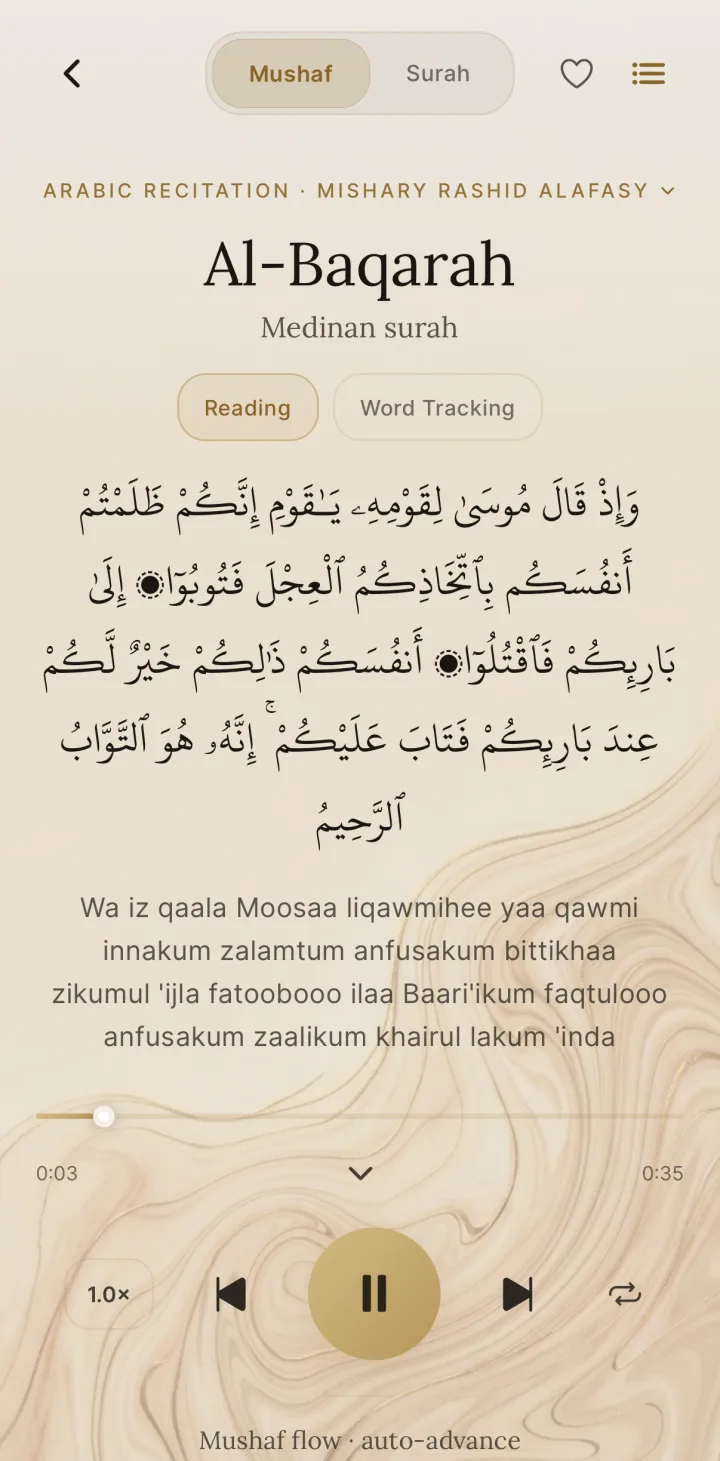 Mushaf Surah
ARABIC RECITATION · MISHARY RASHID ALAFASY
Al-Baqarah
Medinan surah
Reading Word Tracking
وَإِذْ قَالَ مُوسَىٰ لِقَوْمِهِۦ يَـٰقَوْمِ إِنَّكُمْ ظَلَمْتُمْ
أَنفُسَكُم بِٱتِّخَاذِكُمُ ٱلْعِجْلَ فَتُوبُوٓا۟ إِلَىٰ
بَارِئِكُمْ فَٱقْتُلُوٓا۟ أَنفُسَكُمْ ذَٰلِكُمْ خَيْرٌ لَّكُمْ
عِندَ بَارِئِكُمْ فَتَابَ عَلَيْكُمْ ۚ إِنَّهُۥ هُوَ ٱلتَّوَّابُ
ٱلرَّحِيمُ
Wa iz qaala Moosaa liqawmihee yaa qawmi
innakum zalamtum anfusakum bittikhaa
zikumul 'ijla fatoobooo ilaa Baari'ikum faqtulooo
anfusakum zaalikum khairul lakum 'inda
0:03 0:35
1.0×
Mushaf flow · auto-advance